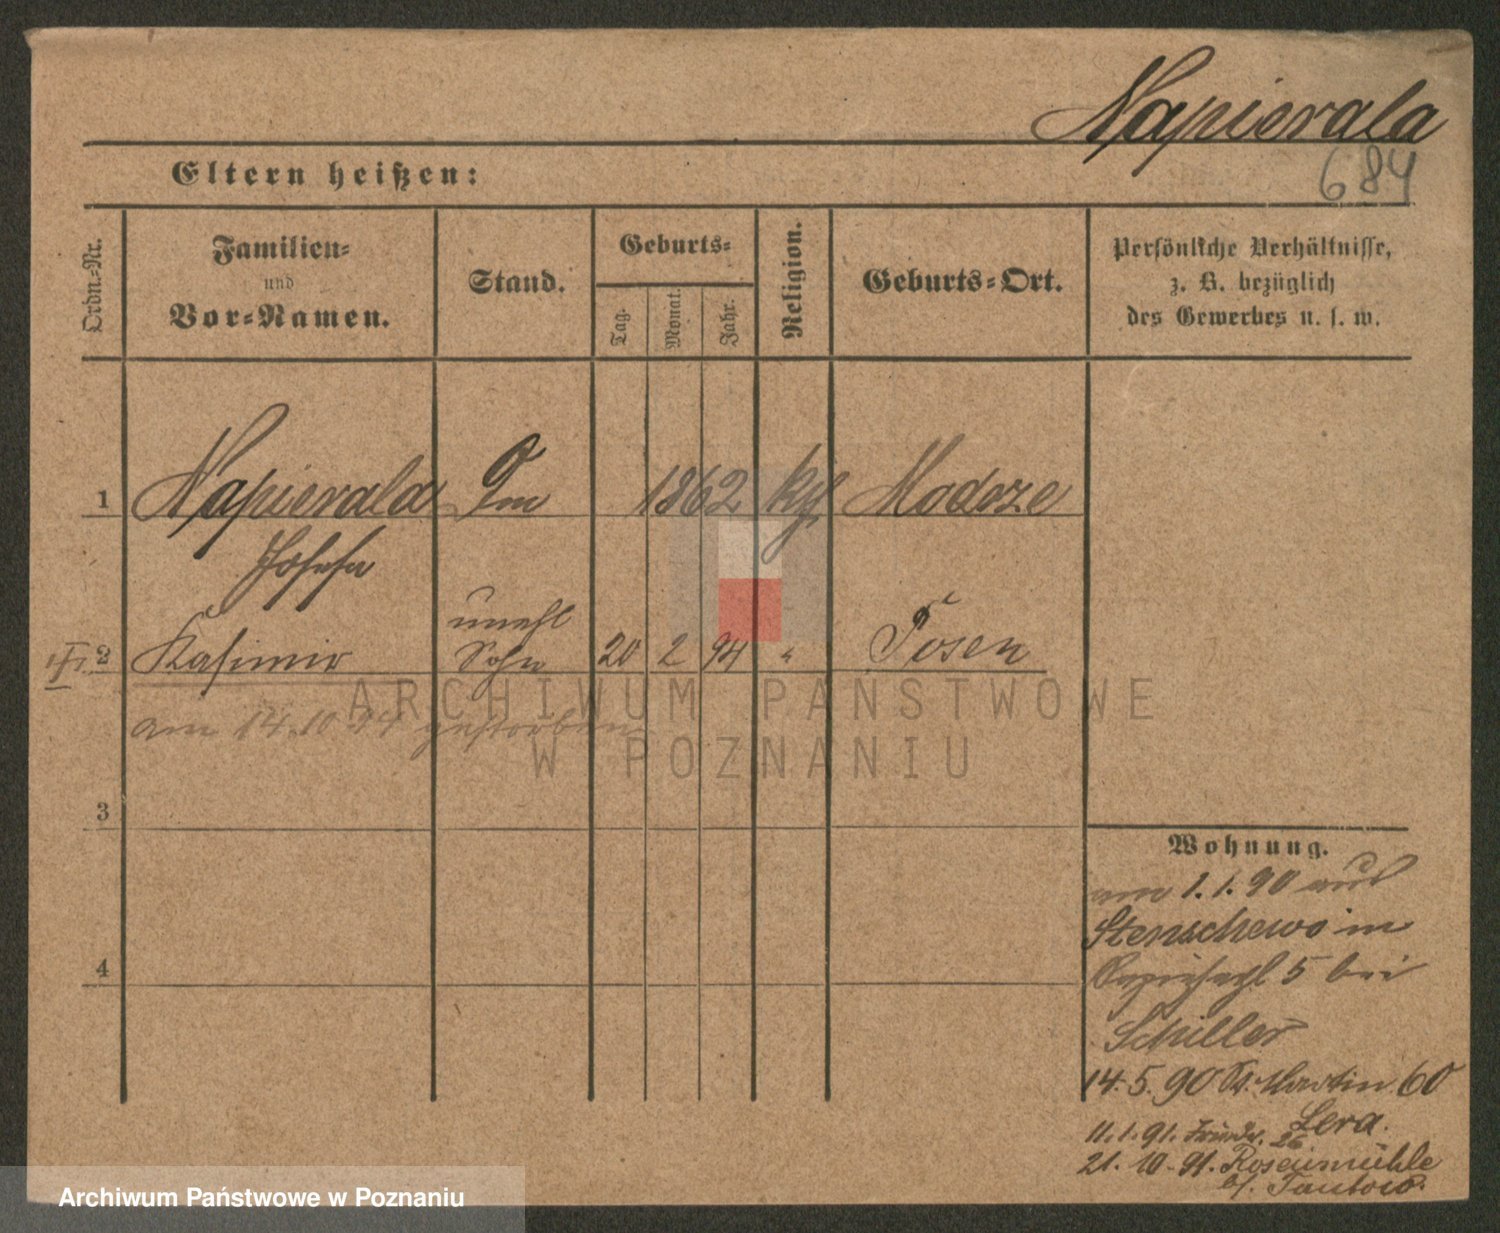 Napierala
684
Eltern heißen:
Ordn.-Nr.
Familien-
und
Vor-Namen.
Stand.
Geburts-
Tag.
Monat.
Jahr.
Religion.
Geburts-Ort.
Persönliche Verhältnisse,
z. B. bezüglich
des Gewerbes u. s. w.
1 Napierala 1862 Modrze
Josefa
unehl
2 Kasimir Sohn 20 2 94 " Posen
am 14.10.94 gestorben
3
4
Wohnung.
am 1.1.90 aus
Stenschewo in
5 bei
Schiller
14.5.90 St. Martin 60
Lera.
11.1.91. 26
21.10.91. Rosenmühle
b/.
ARCHIWUM PAŃSTWOWE
W POZNANIU
Archiwum Państwowe w Poznaniu